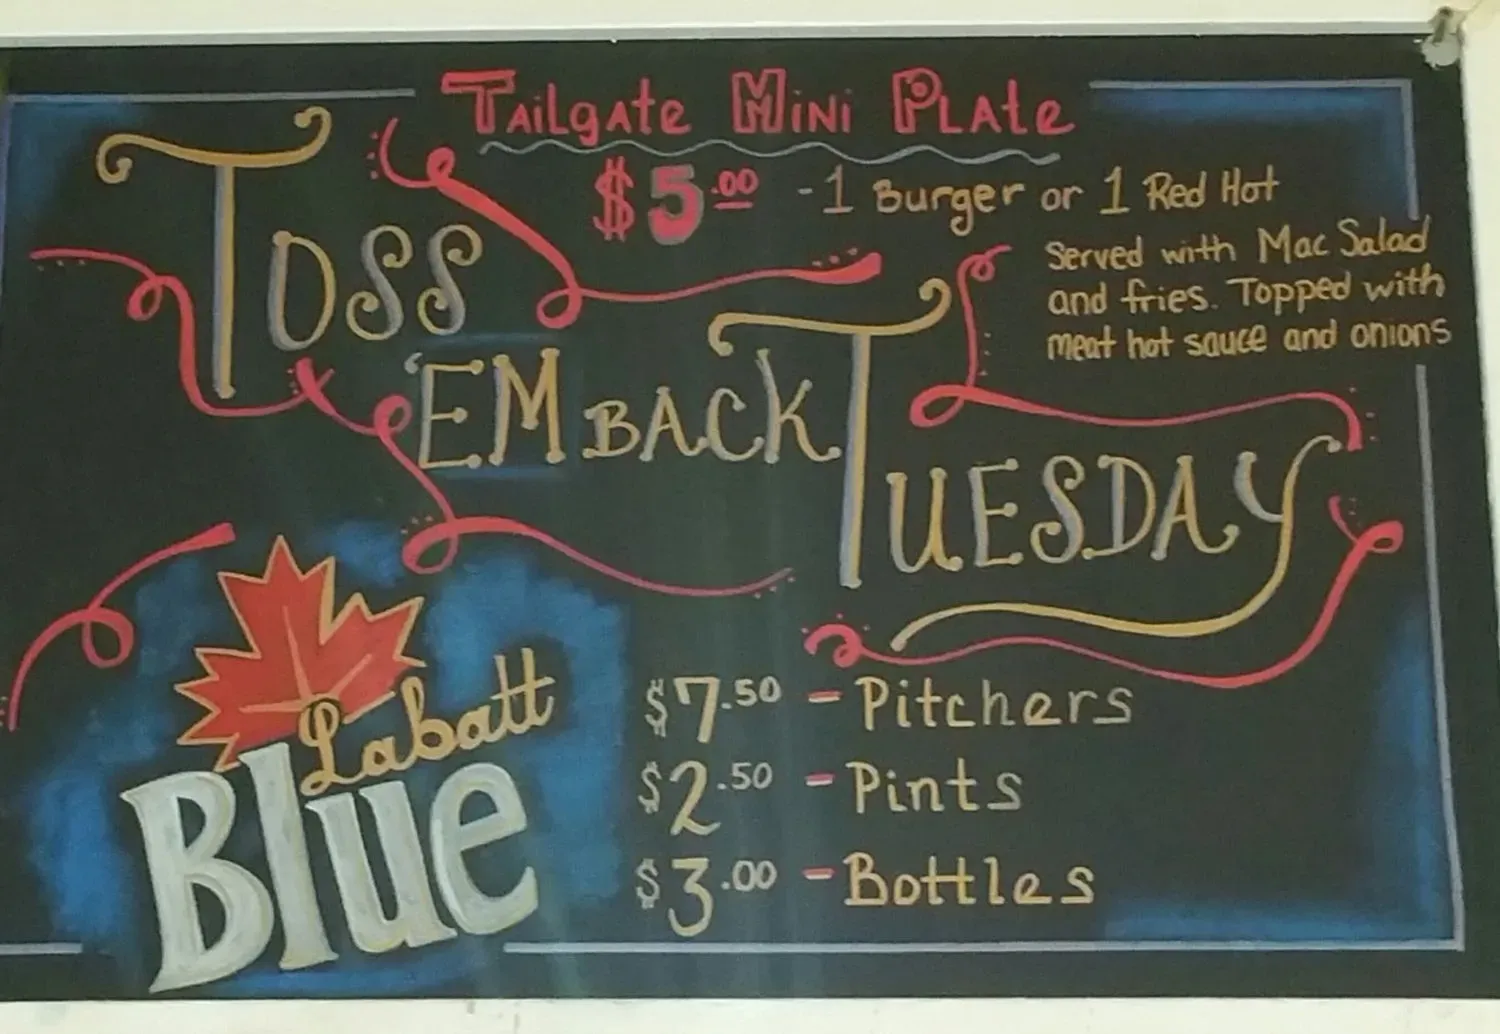 Tailgate Mini Plate
$5.00 - 1 Burger or 1 Red Hot
Served with Mac Salad
and fries. Topped with
meat hot sauce and onions
Toss
'Em Back
Tuesday
Labatt
Blue
$7.50 - Pitchers
$2.50 - Pints
$3.00 - Bottles